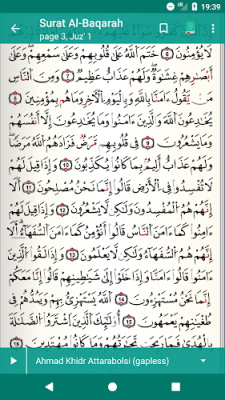 19:39
Surat Al-Baqarah
page 3, Juz' 1
لَا يُؤْمِنُونَ ٦ خَتَمَ ٱللَّهُ عَلَىٰ قُلُوبِهِمْ وَعَلَىٰ سَمْعِهِمْ وَعَلَىٰ
أَبْصَٰرِهِمْ غِشَٰوَةٌ وَلَهُمْ عَذَابٌ عَظِيمٌ ٧ وَمِنَ ٱلنَّاسِ
مَن يَقُولُ ءَامَنَّا بِٱللَّهِ وَبِٱلْيَوْمِ ٱلْءَاخِرِ وَمَا هُم بِمُؤْمِنِينَ
٨ يُخَٰدِعُونَ ٱللَّهَ وَٱلَّذِينَ ءَامَنُوا۟ وَمَا يَخْدَعُونَ إِلَّآ أَنفُسَهُمْ
وَمَا يَشْعُرُونَ ٩ فِى قُلُوبِهِم مَّرَضٌ فَزَادَهُمُ ٱللَّهُ مَرَضًا
وَلَهُمْ عَذَابٌ أَلِيمٌۢ بِمَا كَانُوا۟ يَكْذِبُونَ ١٠ وَإِذَا قِيلَ لَهُمْ
لَا تُفْسِدُوا۟ فِى ٱلْأَرْضِ قَالُوٓا۟ إِنَّمَا نَحْنُ مُصْلِحُونَ ١١ أَلَآ
إِنَّهُمْ هُمُ ٱلْمُفْسِدُونَ وَلَٰكِن لَّا يَشْعُرُونَ ١٢ وَإِذَا قِيلَ
لَهُمْ ءَامِنُوا۟ كَمَآ ءَامَنَ ٱلنَّاسُ قَالُوٓا۟ أَنُؤْمِنُ كَمَآ ءَامَنَ ٱلسُّفَهَآءُ أَلَآ
إِنَّهُمْ هُمُ ٱلسُّفَهَآءُ وَلَٰكِن لَّا يَعْلَمُونَ ١٣ وَإِذَا لَقُوا۟ ٱلَّذِينَ
ءَامَنُوا۟ قَالُوٓا۟ ءَامَنَّا وَإِذَا خَلَوْا۟ إِلَىٰ شَيَٰطِينِهِمْ قَالُوٓا۟ إِنَّا مَعَكُمْ
إِنَّمَا نَحْنُ مُسْتَهْزِءُونَ ١٤ ٱللَّهُ يَسْتَهْزِئُ بِهِمْ وَيَمُدُّهُمْ فِى
طُغْيَٰنِهِمْ يَعْمَهُونَ ١٥ أُو۟لَٰٓئِكَ ٱلَّذِينَ ٱشْتَرَوُا۟ ٱلضَّلَٰلَةَ
بِٱلْهُدَىٰ فَمَا رَبِحَت تِّجَٰرَتُهُمْ وَمَا كَانُوا۟ مُهْتَدِينَ
Ahmad Khidr Attarabolsi (gapless)